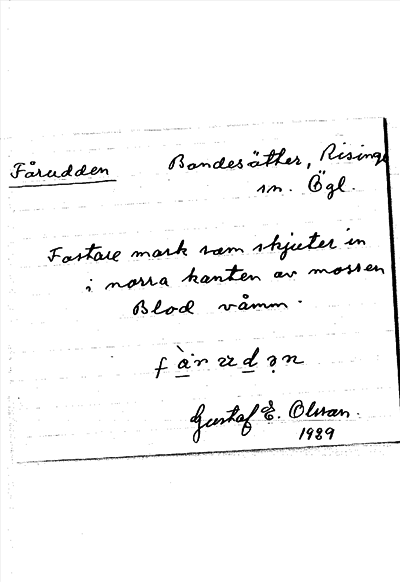 Fårudden
Bondesäther, Risinge
sn. Ögl.
Fastare mark som skjuter in
i norra kanten av mossen
Blod våmm.
Gustaf E. Olsson.
1939